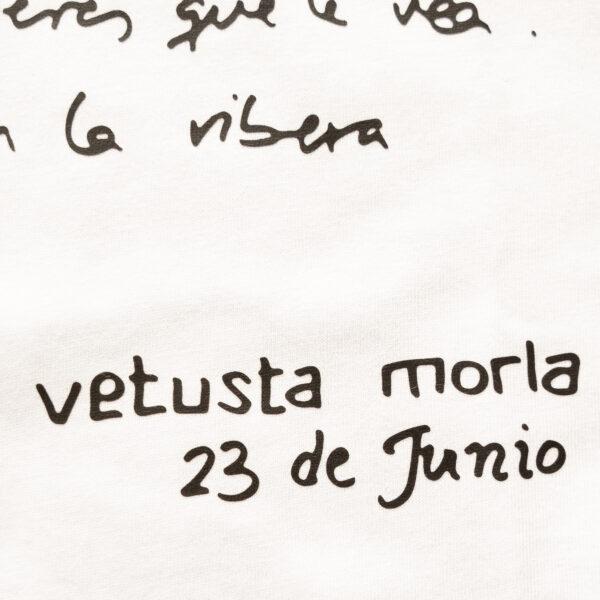 eres que te vea.
n la ribera
vetusta morla
23 de Junio